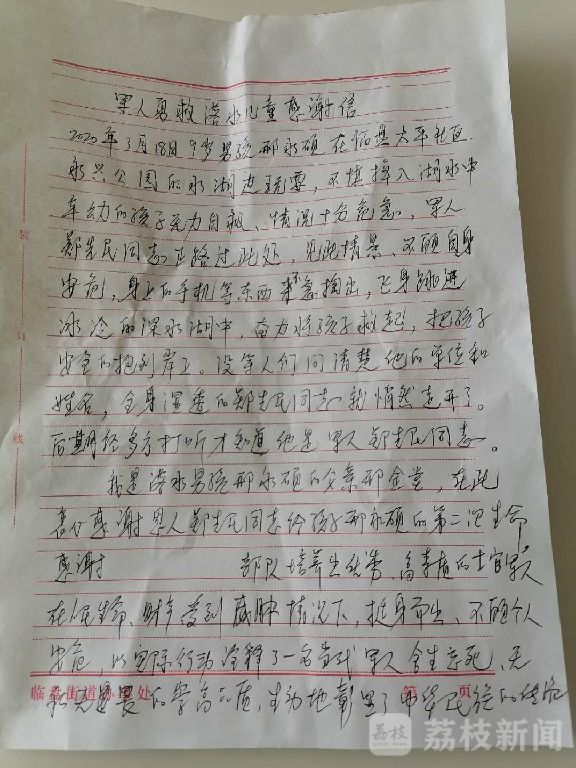 军人勇救落水儿童感谢信
2020年3月18日9岁男孩邢永硕在临盘太平社区
永兴公园的水湖边玩耍，不慎掉入湖水中
年幼的孩子无力自救、情况十分危急，军人
郑先民同志正路过此处，见此情景、不顾自身
安危，身上的手机等东西来不急掏出，飞身跳进
冰冷的深水湖中，奋力将孩子救起，把孩子
安全的抱到岸上。没等人们问清楚他的单位和
姓名，全身湿透的郑先民同志就悄然走开了。
后期经多方打听才知道他是军人郑先民同志。
我是落水男孩邢永硕的父亲邢金堂，在此
万分感谢军人郑先民同志给孩子邢永硕的第二次生命，
感谢 部队培养出优秀、高素质的士官军人
在人民生命、财产受到威胁情况下，挺身而出、不顾个人
安危，以实际行动诠释了一名当代军人舍生忘死、无
临盘街道办事处 第 页
的崇高品质，生动地彰显了中华民族的传统
装
订
线
荔枝
荔枝新闻